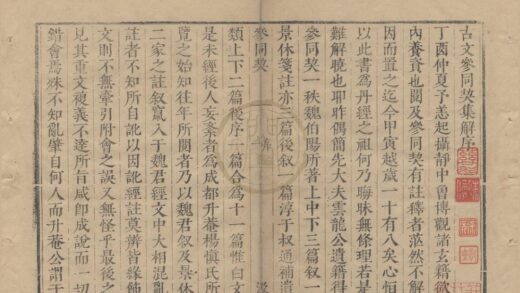 古文參同契集解序
丁酉仲夏予恙起攝靜中會博觀諸玄籍欲
內養資也閱及參同契有註釋者茫然不解
因而置之迄今甲寅越歲一十有八矣心恒
以此書為丹經之祖何乃聯昧無條理若是
難解曉也耶昨偶簡先大夫雲龍公遺籍得
參同契一秩魏伯陽所著上中下三篇敘一
景休箋註亦三篇後敘一篇淳于叔通補遺
類上下二篇後序一篇合為十一篇惟曰文
是未經後人妄紊者為成都升菴楊慎氏所
覽之始知往年所閱者乃以魏君敘及景休
二家之註敘竄入于魏君經文中大相混亂
註者不知所自訛以因訛經註莫辨皆緣飾
文則不無牽引附會之誤又無怪乎最後之
見其重文複義不達所旨咸卽成說而一切
錯會焉殊不知亂肇自何人而升菴公謂于
參同契